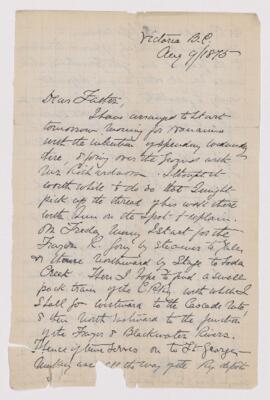 Victoria B.C.
Aug 9/1875
Dear Father,
I have arranged to start
tomorrow morning for Nanaimo
with the intention of spending
there, & going over the ground with
Mr Richardson. I thought it
worth while to do so that I might
pick up the thread of his work there
with him on the spot to explain.
On Friday Morng I start for the
Fraser R. going by steamer to Yale
& thence Northward by Stage to Soda
Creek. There I hope to find a small
pack train of the C.P.Ry. with which I
shall go westward to the Cascade Mts
& then North Eastward to the junction
of the Fraser & Blackwater Rivers.
Thence if time serves on to Ft. George
all the way of the Ry depot